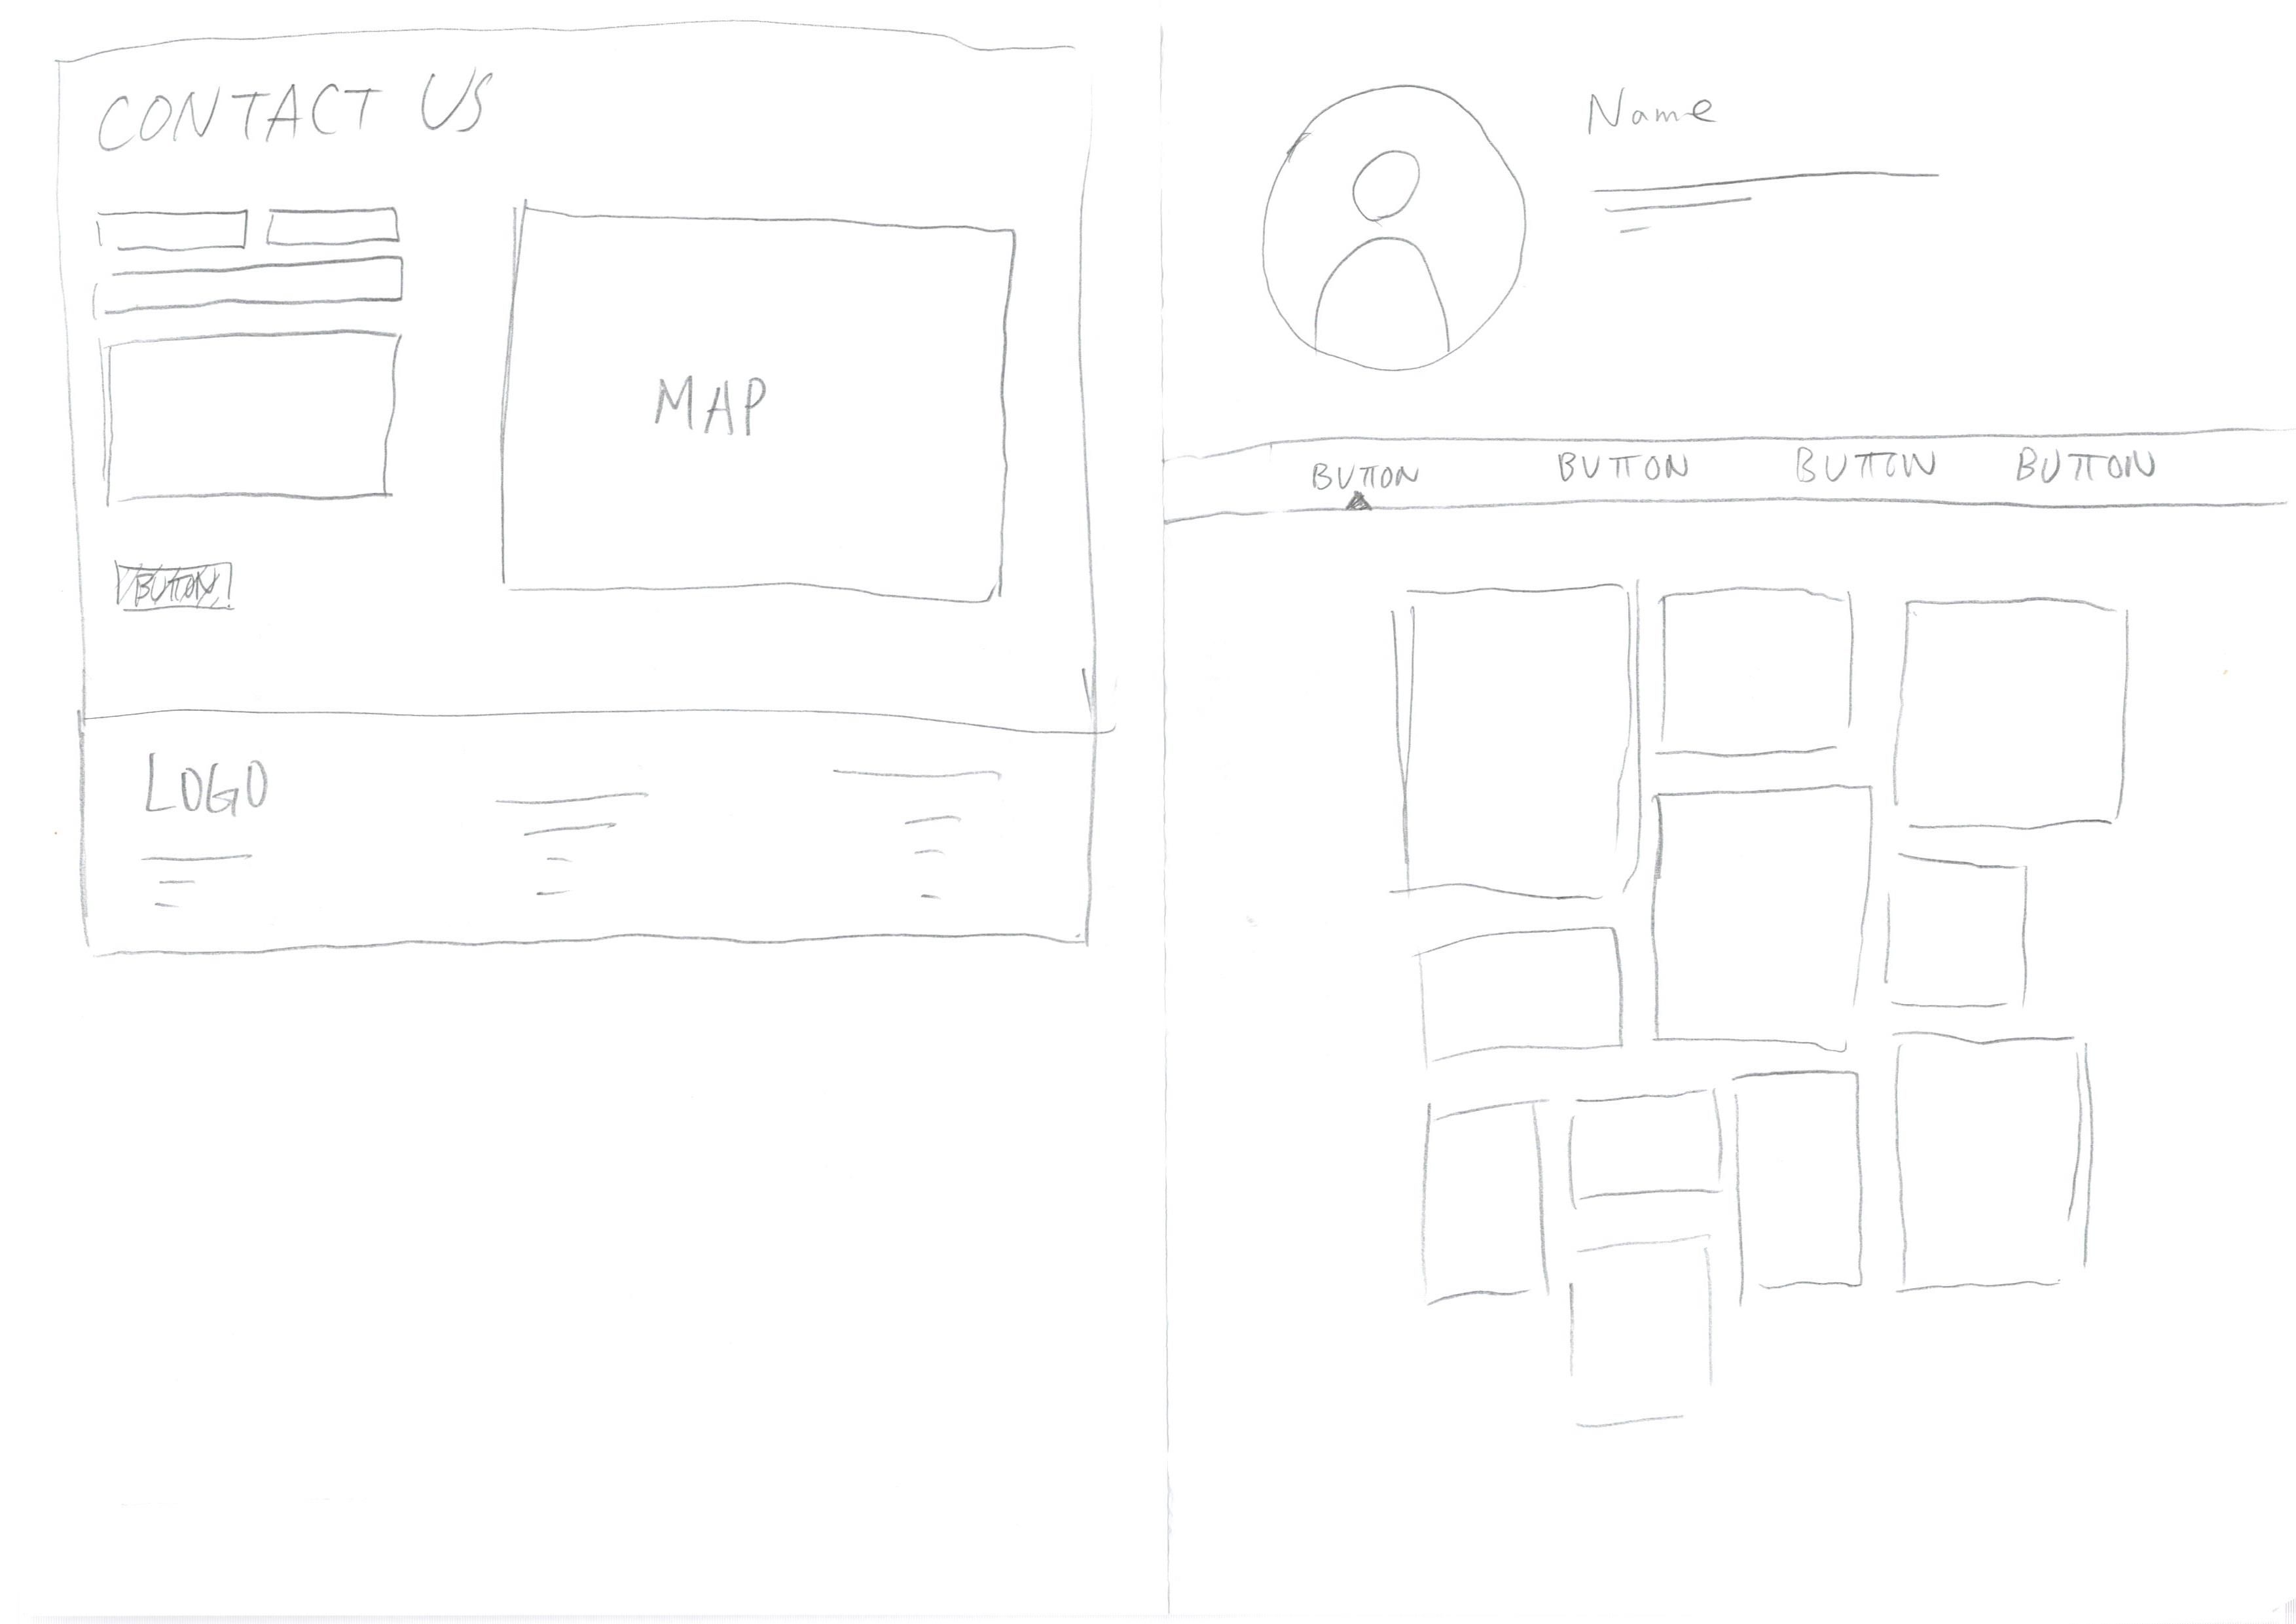 CONTACT US
MAP
BUTTON
LOGO
Name
BUTTON BUTTON BUTTON BUTTON